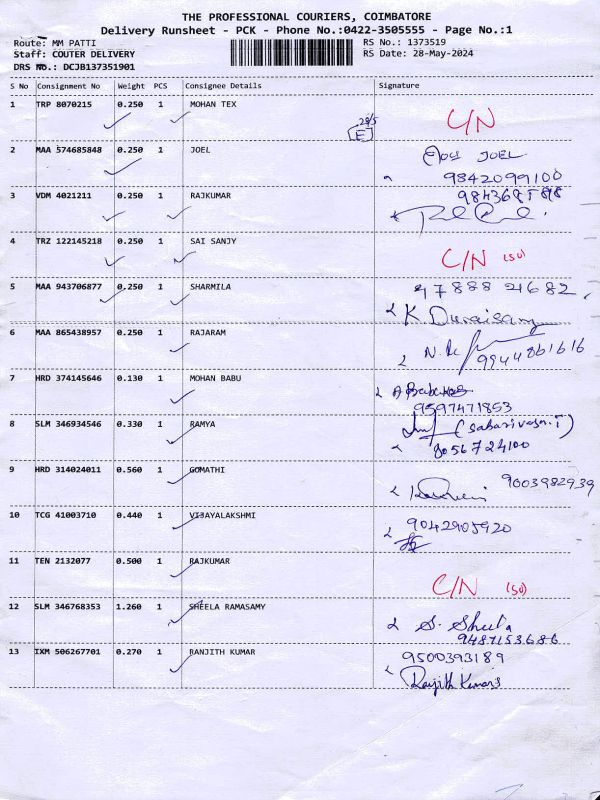 THE PROFESSIONAL COURIERS, COIMBATORE
Delivery Runsheet - PCK - Phone No.:0422-3505555 - Page No.:1
Route: MM PATTI
RS No.: 1373519
Staff: COUTER DELIVERY
RS Date: 28-May-2024
DRS No.: DCJB137351901
S No Consignment No Weight PCS Consignee Details Signature
1 TRP 8070215 0.250 1 MOHAN TEX
28/5
E
C/N
2 MAA 574685848 0.250 1 JOEL
JOEL
9842099100
3 VDM 4021211 0.250 1 RAJKUMAR
4 TRZ 122145218 0.250 1 SAI SANJY
C/N (SU)
5 MAA 943706877 0.250 1 SHARMILA
K Duraisamy
6 MAA 865438957 0.250 1 RAJARAM
9944861616
7 HRD 374145646 0.130 1 MOHAN BABU
9597471853
8 SLM 346934546 0.330 1 RAMYA
8056724100
9 HRD 314024011 0.560 1 GOMATHI
9003982939
10 TCG 41003710 0.440 1 VIJAYALAKSHMI
9042905920
11 TEN 2132077 0.500 1 RAJKUMAR
C/N (SU)
12 SLM 346768353 1.260 1 SHEELA RAMASAMY
S. Sheela
9487153686
13 IXM 506267701 0.270 1 RANJITH KUMAR
9500393189
Ranjith Kumar